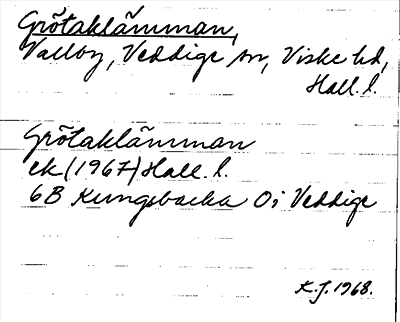 Grötaklämman,
Valby, Veddige sn, Viske hd,
Hall. l.
Grötaklämman
ek (1967) Hall. l.
6B Kungsbacka 0i Veddige
K.J. 1968.